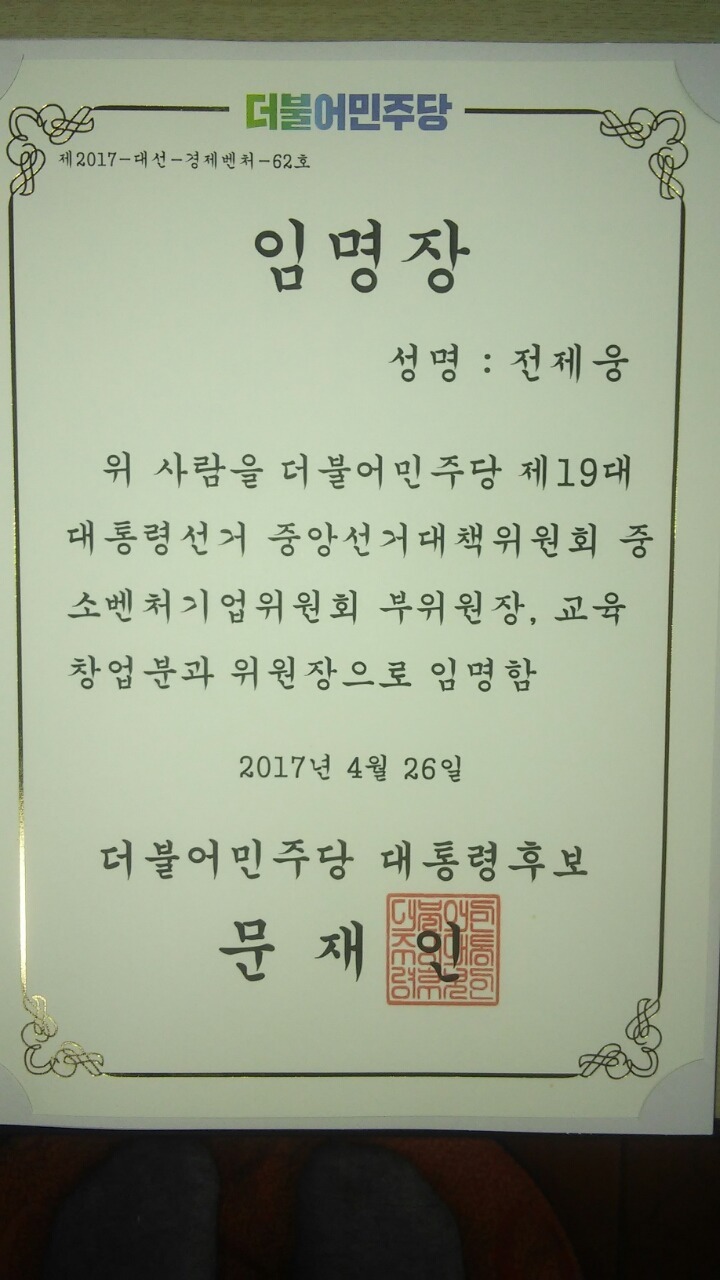 더불어민주당
제2017-대선-경제벤처-62호
임명장
성명 : 전제웅
위 사람을 더불어민주당 제19대
대통령선거 중앙선거대책위원회 중
소벤처기업위원회 부위원장, 교육
창업분과 위원장으로 임명함
2017년 4월 26일
더불어민주당 대통령후보
문 재 인